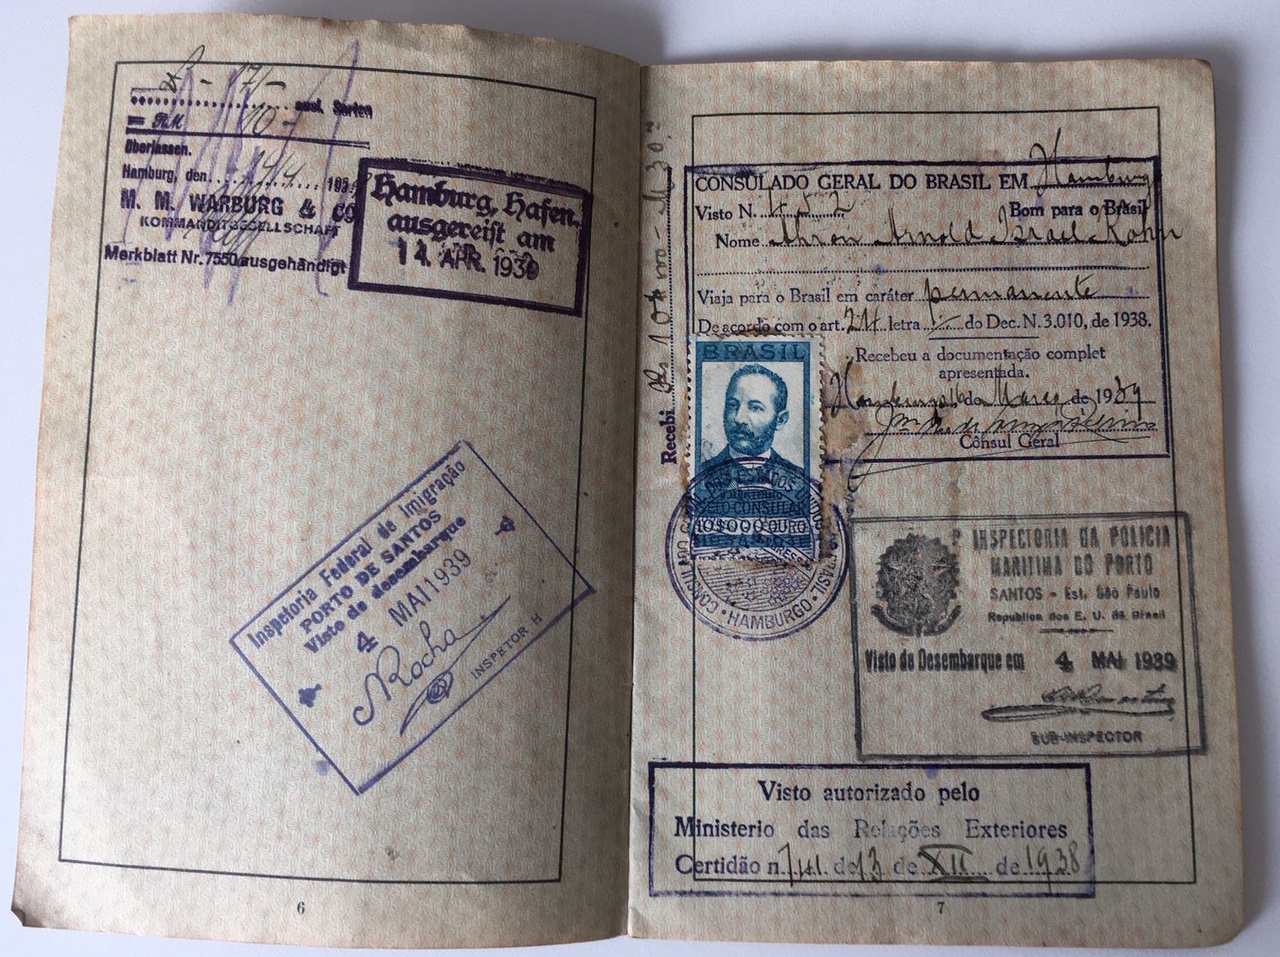 ausl. Sorten
= RM 10.-
überlassen.
Hamburg, den 14/4 193
M. M. WARBURG & CO
KOMMANDITGESELLSCHAFT
Merkblatt Nr. 7550 ausgehändigt
Hamburg, Hafen,
ausgereist am
14. APR. 1939
Inspetoria Federal de Imigração
PORTO DE SANTOS
Visto de desembarque
4 MAI 1939
Rocha
INSPETOR H
6
CONSULADO GERAL DO BRASIL EM Hamburg
Visto N. 452 Bom para o Brasil
Nome Ahron Arnold Israel Kohn
Viaja para o Brasil em caráter permanente
De acordo com o art. 24 letra do Dec. N. 3.010, de 1938.
Recebeu a documentação complet
apresentada.
Hamburgo 16 de Março de 1939
Cônsul Geral
Recebi
BRASIL
10$000 OURO
HAMBURGO
INSPECTORIA DA POLICIA
MARITIMA DO PORTO
SANTOS - Est. São Paulo
Republica dos E. U. do Brasil
Visto de Desembarque em 4 MAI 1939
SUB-INSPECTOR
Visto autorizado pelo
Ministerio das Relações Exteriores
Certidão n. de 13 de XII de 1938
7